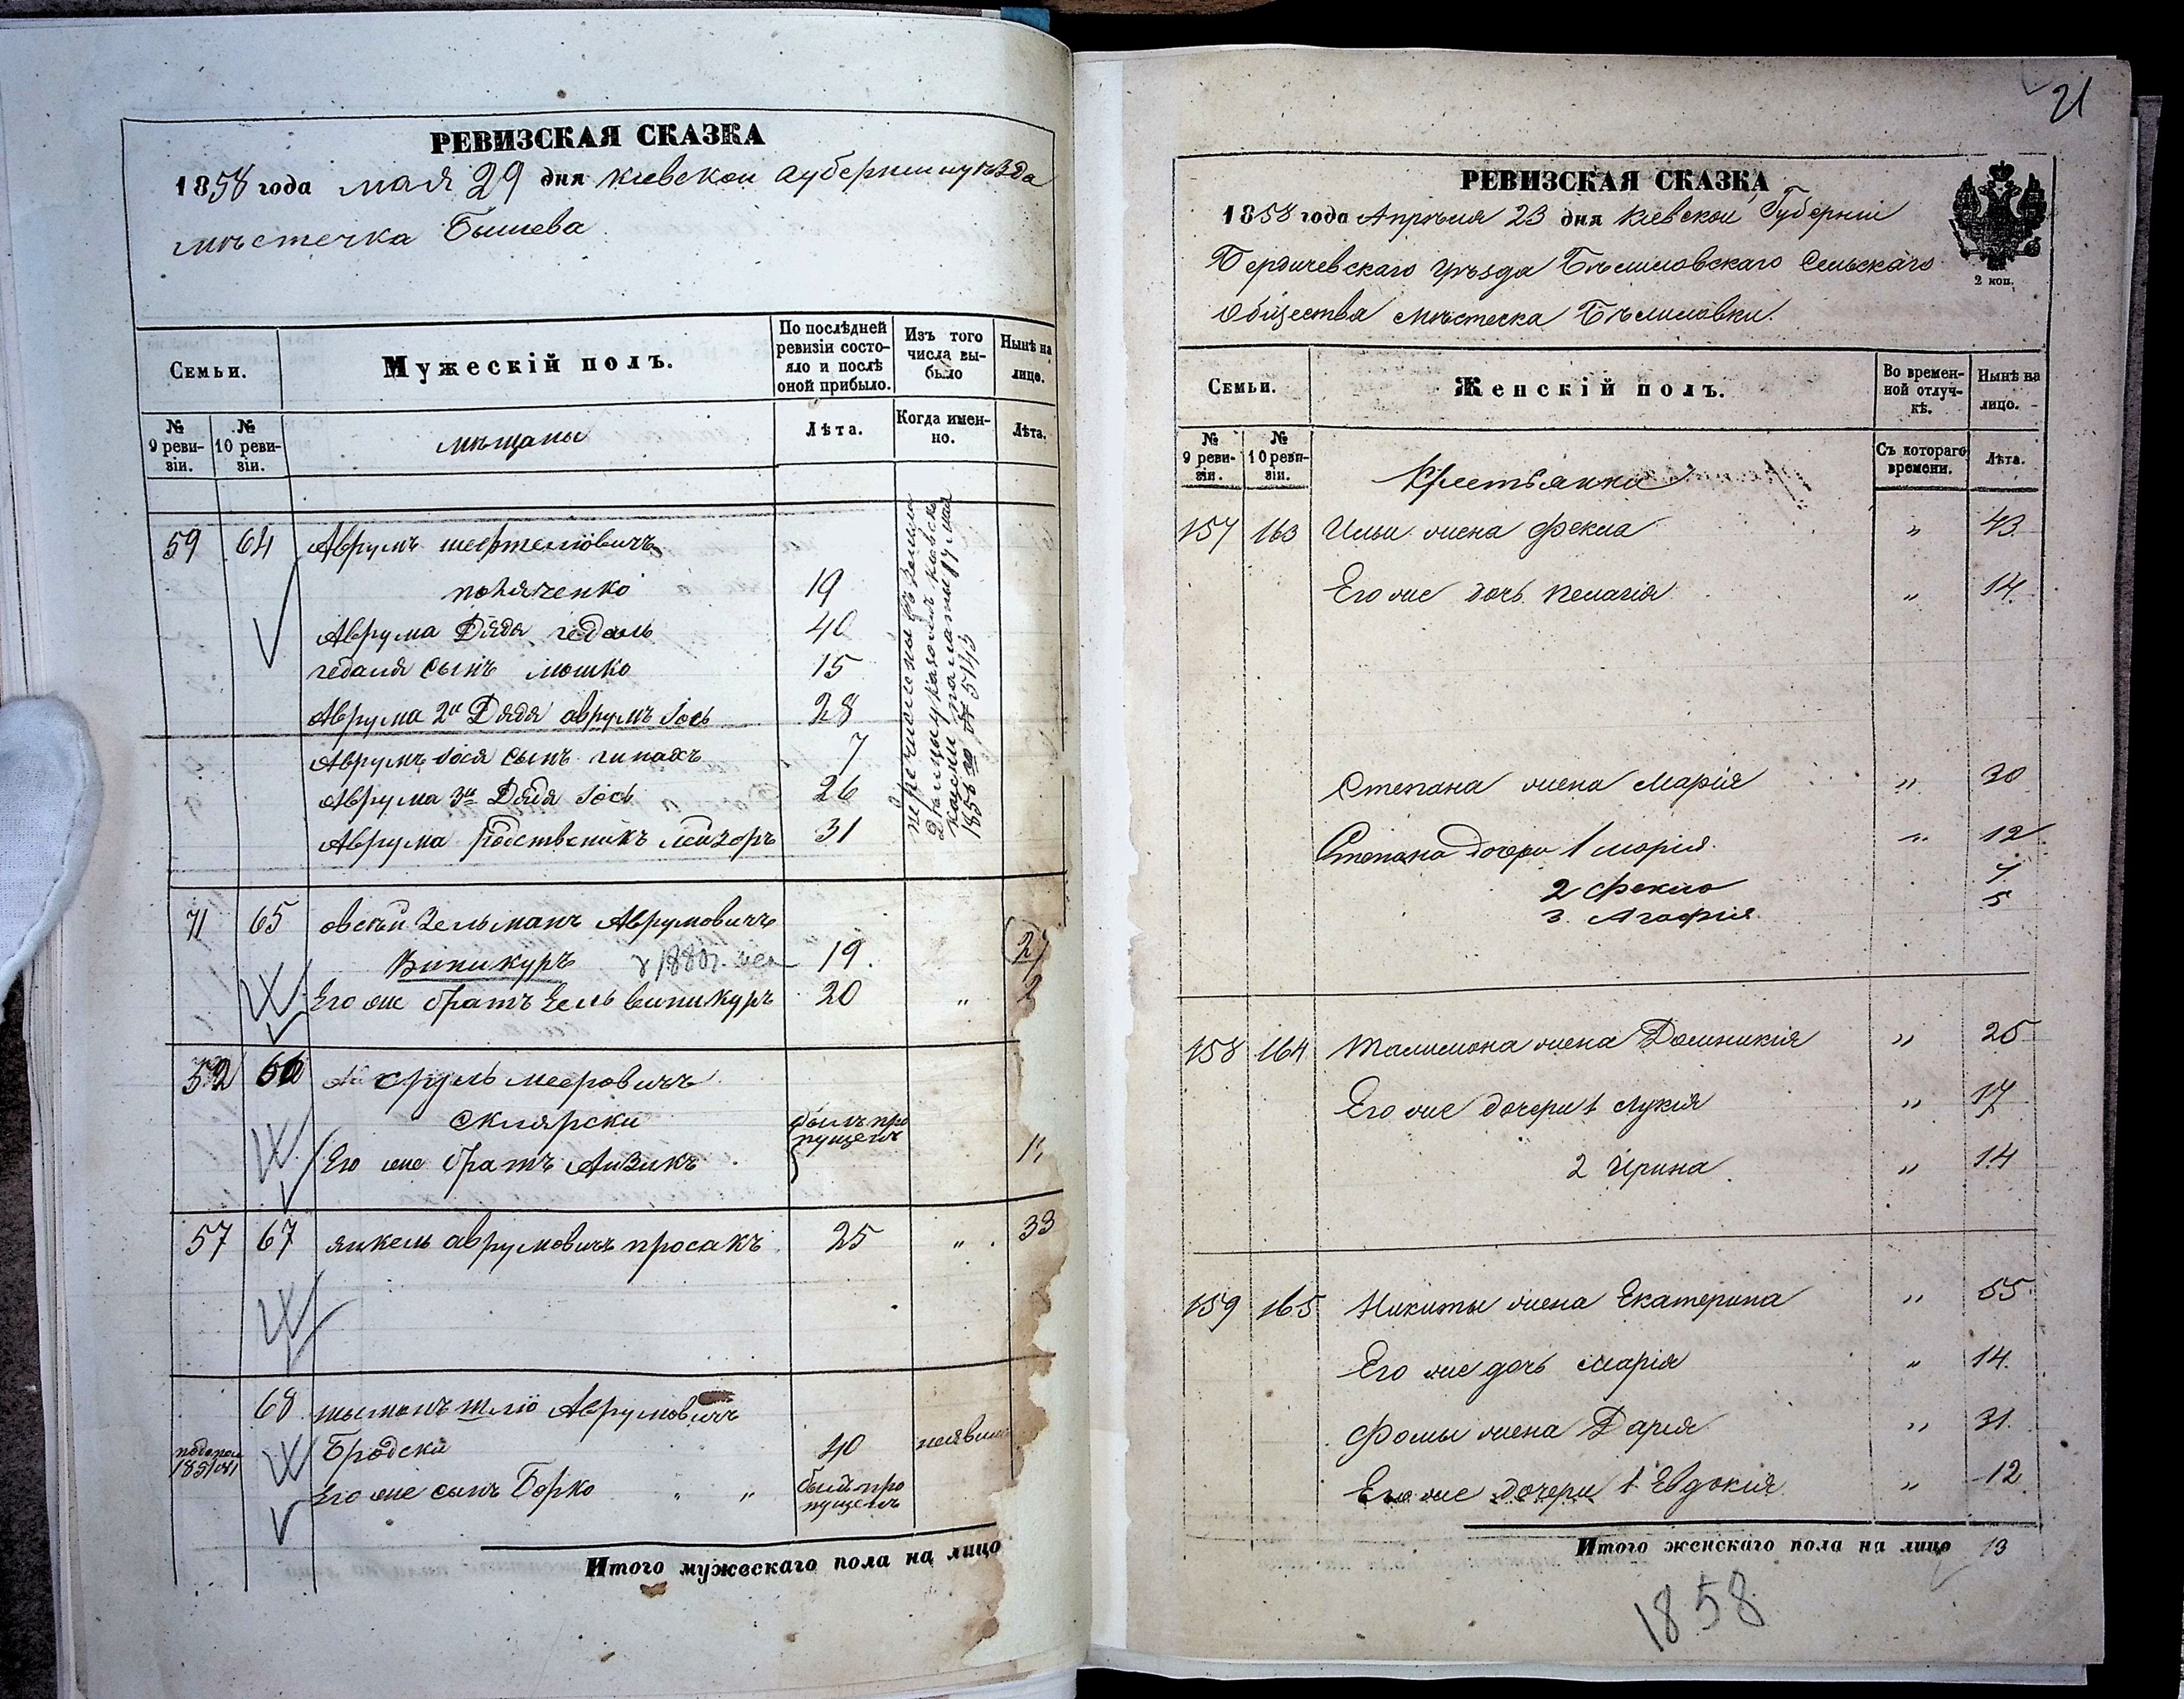 РЕВИЗСКАЯ СКАЗКА
1858 года мая 29 дня киевской губернии и уѣзда
мѣстечка Бышева
Семьи.
Мужескій полъ.
По послѣдней ревизіи состояло и послѣ оной прибыло.
Изъ того числа выбыло
Нынѣ на лицо.
№ 9 ревизіи.
№ 10 ревизіи.
мѣщаны
Лѣта.
Когда именно.
Лѣта.
59 64 Аврумъ
19
Аврума Дядя гедаль 40
гедаля сынъ мошко 15
Аврума 2й Дядя аврумъ Іось 28
Аврумъ Іося сынъ 7
Аврума 3й Дядя Іось 26
Аврума Родственикъ лейзоръ 31
перечислены въ
1856 го № 5143
71 65 овсѣй Зельманъ Аврумовичъ
Виникуръ 19 27
Его же братъ виникуръ 20 „ 2
52 66 сруль мееровичъ
Склярски былъ пропущенъ
Его же братъ Айзикъ
57 67 янкель аврумовичъ просакъ 25 „ 33
68 Аврумовичъ
1851 Бродски 40
Его же сынъ Борко „ „ былъ пропущенъ
Итого мужескаго пола на лицо
21
РЕВИЗСКАЯ СКАЗКА
1858 года Апрѣля 23 дня Кіевской Губерніи
Бердичевскаго уѣзда Бѣлиловскаго Сельскаго
Общества мѣстечка Бѣлиловки.
2 коп.
Семьи.
Женскій полъ.
Во временной отлучкѣ.
Нынѣ на лицо.
№ 9 ревизіи.
№ 10 ревизіи.
Крестьянки
Съ котораго времени.
Лѣта.
157 163 Ильи жена Фекла „ 43
Его же дочь Пелагія „ 14
Степана жена Марія „ 30
Степана дочери 1 марія „ 12
2 Фекла 7
3. Агафія 5
158 164 жена Домникія „ 25
Его же дочери 1 Лукія „ 17
2 Ирина „ 14
159 165 Никиты жена Екатерина „ 55
Его же дочь Марія „ 14.
Фомы жена Дарія „ 31.
Его же дочери 1 Евдокія „ 12
Итого женскаго пола на лицо 13
1858